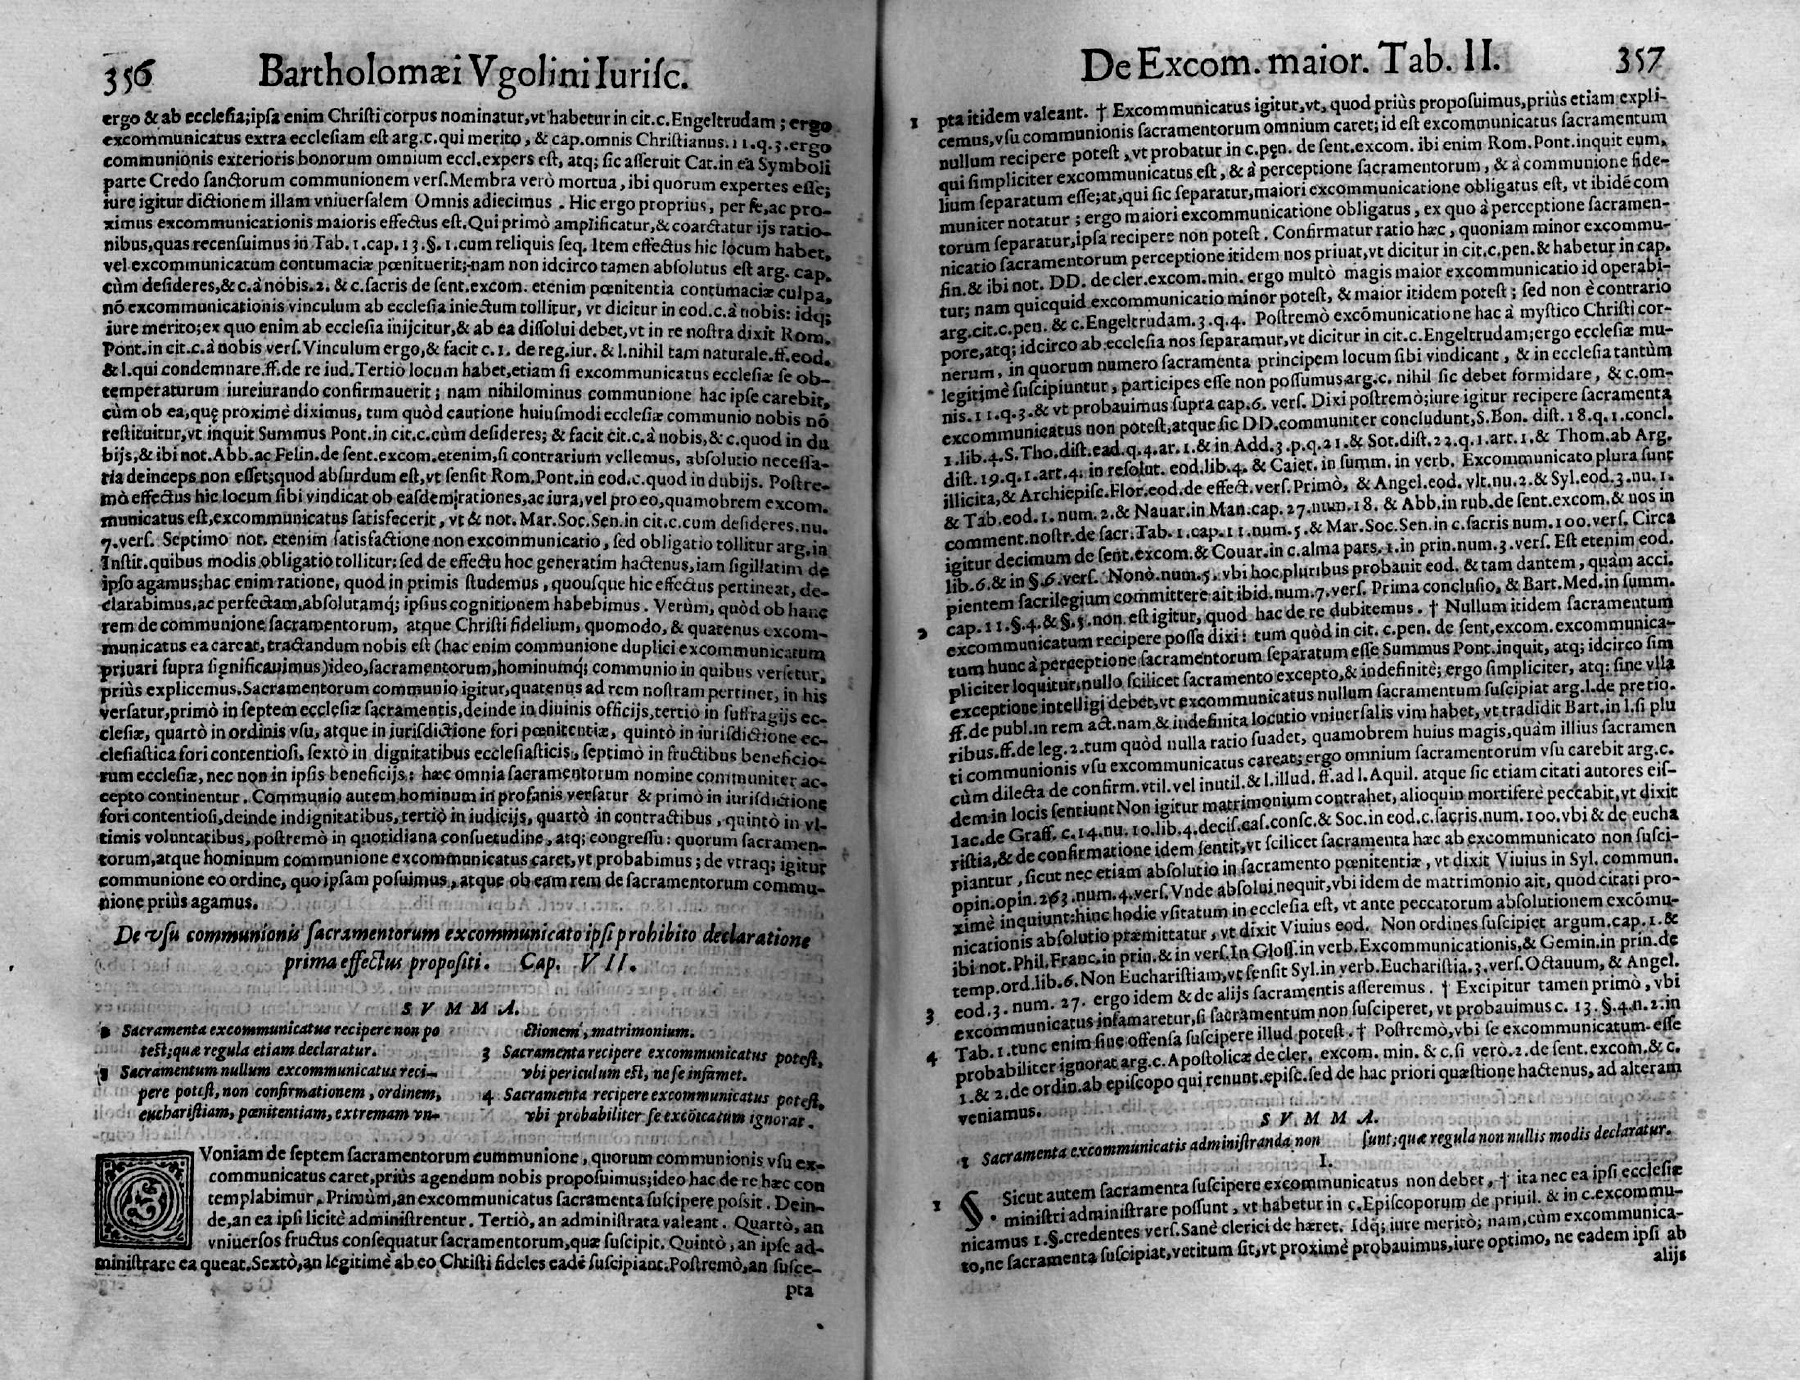 356 Bartholomæi Vgolini Iurisc.
ergo & ab ecclesia; ipsa enim Christi corpus nominatur, vt habetur in cit. c. Engeltrudam; ergo
excommunicatus extra ecclesiam est arg. c. qui merito, & cap. omnis Christianus. 11. q. 3. ergo
communionis exterioris bonorum omnium eccl. expers est, atq; sic asseruit Cat. in ea Symboli
parte Credo sanctorum communionem vers. Membra verò mortua, ibi quorum expertes esse;
iure igitur dictionem illam vniuersalem Omnis adiecimus. Hic ergo proprius, per se, ac pro-
ximus excommunicationis maioris effectus est. Qui primò amplificatur, & coarctatur ijs ratio-
nibus, quas recensuimus in Tab. 1. cap. 13. §. 1. cum reliquis seq. Item effectus hic locum habet,
vel excommunicatum contumaciæ pœnituerit; nam non idcirco tamen absolutus est arg. cap.
cùm desideres, & c. à nobis. 2. & c. sacris de sent. excom. etenim pœnitentia contumaciæ culpa,
nō excommunicationis vinculum ab ecclesia iniectum tollitur, vt dicitur in eod. c. à nobis: idq;
iure merito; ex quo enim ab ecclesia inijcitur, & ab ea dissolui debet, vt in re nostra dixit Rom.
Pont. in cit. c. à nobis vers. Vinculum ergo, & facit c. 1. de reg. iur. & l. nihil tam naturale. ff. eod.
& l. qui condemnare. ff. de re iud. Tertiò locum habet, etiam si excommunicatus ecclesiæ se ob-
temperaturum iureiurando confirmauerit; nam nihilominus communione hac ipse carebit,
cùm ob ea, quę proximè diximus, tum quòd cautione huiusmodi ecclesiæ communio nobis nō
restituitur, vt inquit Summus Pont. in cit. c. cùm desideres; & facit cit. c. à nobis, & c. quod in du
bijs, & ibi not. Abb. ac Felin. de sent. excom. etenim, si contrarium vellemus, absolutio necessa-
ria deinceps non esset; quod absurdum est, vt sensit Rom. Pont. in eod. c. quod in dubijs. Postre-
mò effectus hic locum sibi vindicat ob easdem rationes, ac iura, vel pro eo, quamobrem excom.
municatus est, excommunicatus satisfecerit, vt & not. Mar. Soc. Sen. in cit. c. cum desideres. nu.
7. vers. Septimo not. etenim satisfactione non excommunicatio, sed obligatio tollitur arg. in
Instit. quibus modis obligatio tollitur; sed de effectu hoc generatim hactenus, iam sigillatim de
ipso agamus; hac enim ratione, quod in primis studemus, quousque hic effectus pertineat, de-
clarabimus, ac perfectam, absolutamq; ipsius cognitionem habebimus. Verùm, quòd ob hanc
rem de communione sacramentorum, atque Christi fidelium, quomodo, & quatenus excom-
municatus ea careat, tractandum nobis est (hac enim communione duplici excommunicatum
priuari supra significauimus) ideo, sacramentorum, hominumq; communio in quibus versetur,
priùs explicemus. Sacramentorum communio igitur, quatenus ad rem nostram pertinet, in his
versatur, primò in septem ecclesiæ sacramentis, deinde in diuinis officijs, tertiò in suffragijs ec-
clesiæ, quartò in ordinis vsu, atque in iurisdictione fori pœnitentiæ, quintò in iurisdictione ec-
clesiastica fori contentiosi, sextò in dignitatibus ecclesiasticis, septimò in fructibus beneficio-
rum ecclesiæ, nec non in ipsis beneficijs: hæc omnia sacramentorum nomine communiter ac-
cepto continentur. Communio autem hominum in profanis versatur & primò in iurisdictione
fori contentiosi, deinde indignitatibus, tertiò in iudicijs, quartò in contractibus, quintò in vl-
timis voluntatibus, postremò in quotidiana consuetudine, atq; congressu: quorum sacramen-
torum, atque hominum communione excommunicatus caret, vt probabimus; de vtraq; igitur
communione eo ordine, quo ipsam posuimus, atque ob eam rem de sacramentorum commu-
nione priùs agamus.
De vsu communionis sacramentorum excommunicato ipsi prohibito declaratione
prima effectus propositi. Cap. VII.
SVMMA.
Sacramenta excommunicatus recipere non po
test; quæ regula etiam declaratur.
Sacramentum nullum excommunicatus reci-
pere potest, non confirmationem, ordinem,
eucharistiam, pœnitentiam, extremam vn-
ctionem, matrimonium.
3 Sacramenta recipere excommunicatus potest,
vbi periculum est, ne se infamet.
4 Sacramenta recipere excommunicatus potest,
vbi probabiliter se excōicatum ignorat.
QVoniam de septem sacramentorum cummunione, quorum communionis vsu ex-
communicatus caret, priùs agendum nobis proposuimus; ideo hac de re hæc con
templabimur. Primùm, an excommunicatus sacramenta suscipere possit. Dein-
de, an ea ipsi licitè administrentur. Tertiò, an administrata valeant. Quartò, an
vniuersos fructus consequatur sacramentorum, quæ suscipit. Quintò, an ipse ad-
ministrare ea queat. Sextò, an legitimè ab eo Christi fideles eadē suscipiant. Postremò, an susce-
pta
De Excom. maior. Tab. II. 357
1 pta itidem valeant. † Excommunicatus igitur, vt, quod priùs proposuimus, priùs etiam expli-
cemus, vsu communionis sacramentorum omnium caret; id est excommunicatus sacramentum
nullum recipere potest, vt probatur in c. pen. de sent. excom. ibi enim Rom. Pont. inquit eum,
qui simpliciter excommunicatus est, & à perceptione sacramentorum, & à communione fide-
lium separatum esse; at, qui sic separatur, maiori excommunicatione obligatus est, vt ibidē com
muniter notatur; ergo maiori excommunicatione obligatus, ex quo à perceptione sacramen-
torum separatur, ipsa recipere non potest. Confirmatur ratio hæc, quoniam minor excommu-
nicatio sacramentorum perceptione itidem nos priuat, vt dicitur in cit. c. pen. & habetur in cap.
fin. & ibi not. DD. de cler. excom. min. ergo multò magis maior excommunicatio id operabi-
tur; nam quicquid excommunicatio minor potest, & maior itidem potest; sed non è contrario
arg. cit. c. pen. & c. Engeltrudam. 3. q. 4. Postremò excōmunicatione hac à mystico Christi cor-
pore, atq; idcirco ab ecclesia nos separamur, vt dicitur in cit. c. Engeltrudam; ergo ecclesiæ mu-
nerum, in quorum numero sacramenta principem locum sibi vindicant, & in ecclesia tantùm
legitimè suscipiuntur, participes esse non possumus arg. c. nihil sic debet formidare, & c. om-
nis. 11. q. 3. & vt probauimus supra cap. 6. vers. Dixi postremò; iure igitur recipere sacramenta
excommunicatus non potest, atque sic DD. communiter concludunt, S. Bon. dist. 18. q. 1. concl.
1. lib. 4. S. Tho. dist. ead. q. 4. ar. 1. & in Add. 3. p. q. 21. & Sot. dist. 22. q. 1. art. 1. & Thom. ab Arg.
dist. 19. q. 1. art. 4. in resolut. eod. lib. 4. & Caiet. in summ. in verb. Excommunicato plura sunt
illicita, & Archiepisc. Flor. eod. de effect. vers. Primò, & Angel. eod. vlt. nu. 2. & Syl. eod. 3. nu. 1.
& Tab. eod. 1. num. 2. & Nauar. in Man. cap. 27. num. 18. & Abb. in rub. de sent. excom. & nos in
comment. nostr. de sacr. Tab. 1. cap. 11. num. 5. & Mar. Soc. Sen. in c. sacris num. 100. vers. Circa
igitur decimum de sent. excom. & Couar. in c. alma pars. 1. in prin. num. 3. vers. Est etenim eod.
lib. 6. & in §. 6. vers. Nonò. num. 5. vbi hoc pluribus probauit eod. & tam dantem, quàm acci.
pientem sacrilegium committere ait ibid. num. 7. vers. Prima conclusio, & Bart. Med. in summ.
cap. 11. §. 4. & §. 5. non est igitur, quod hac de re dubitemus. † Nullum itidem sacramentum
2 excommunicatum recipere posse dixi: tum quòd in cit. c. pen. de sent. excom. excommunica-
tum hunc à perceptione sacramentorum separatum esse Summus Pont. inquit, atq; idcirco sim
pliciter loquitur, nullo scilicet sacramento excepto, & indefinitè; ergo simpliciter, atq; sine vlla
exceptione intelligi debet, vt excommunicatus nullum sacramentum suscipiat arg. l. de pretio.
ff. de publ. in rem act. nam & indefinita locutio vniuersalis vim habet, vt tradidit Bart. in l. si plu
ribus. ff. de leg. 2. tum quòd nulla ratio suadet, quamobrem huius magis, quàm illius sacramen
ti communionis vsu excommunicatus careat; ergo omnium sacramentorum vsu carebit arg. c.
cùm dilecta de confirm. vtil. vel inutil. & l. illud. ff. ad l. Aquil. atque sic etiam citati autores eis-
dem in locis sentiunt Non igitur matrimonium contrahet, alioquin mortiferè peccabit, vt dixit
Iac. de Graff. c. 14. nu. 10. lib. 4. decis. cas. consc. & Soc. in eod. c. sacris. num. 100. vbi & de eucha
ristia, & de confirmatione idem sentit, vt scilicet sacramenta hæc ab excommunicato non susci-
piantur, sicut nec etiam absolutio in sacramento pœnitentiæ, vt dixit Viuius in Syl. commun.
opin. opin. 263. num. 4. vers. Vnde absolui nequit, vbi idem de matrimonio ait, quod citati pro-
ximè inquiunt: hinc hodie vsitatum in ecclesia est, vt ante peccatorum absolutionem excōmu-
nicationis absolutio præmittatur, vt dixit Viuius eod. Non ordines suscipiet argum. cap. 1. &
ibi not. Phil. Franc. in prin. & in vers. In Gloss. in verb. Excommunicationis, & Gemin. in prin. de
temp. ord. lib. 6. Non Eucharistiam, vt sensit Syl. in verb. Eucharistia. 3. vers. Octauum, & Angel.
eod. 3. num. 27. ergo idem & de alijs sacramentis asseremus. † Excipitur tamen primò, vbi
3 excommunicatus infamaretur, si sacramentum non susciperet, vt probauimus c. 13. §. 4. n. 2. in
Tab. 1. tunc enim sine offensa suscipere illud potest. † Postremò, vbi se excommunicatum esse
4 probabiliter ignorat arg. c. Apostolicæ de cler. excom. min. & c. si verò. 2. de sent. excom. & c.
1. & 2. de ordin. ab episcopo qui renunt. episc. sed de hac priori quæstione hactenus, ad alteram
veniamus.
SVMMA.
1 Sacramenta excommunicatis administranda non sunt; quæ regula non nullis modis declaratur.
I.
1 §. Sicut autem sacramenta suscipere excommunicatus non debet, † ita nec ea ipsi ecclesiæ
ministri administrare possunt, vt habetur in c. Episcoporum de priuil. & in c. excommu-
nicamus 1. §. credentes vers. Sanè clerici de hæret. Idq; iure meritò; nam, cùm excommunica-
to, ne sacramenta suscipiat, vetitum sit, vt proximè probauimus, iure optimo, ne eadem ipsi ab
alijs